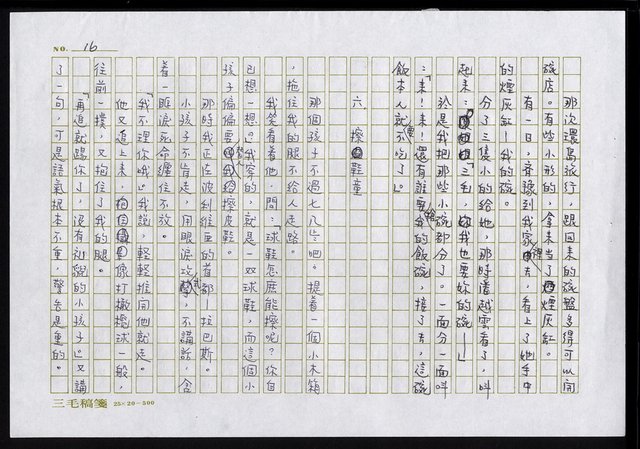 NO. 16
那次環島旅行，跟回來的碗盤多得可以開
碗店。有些小形的，拿來當了煙灰缸。
有一日，齊豫到我家裡去，看上了她手中
的煙灰缸—我的碗。
分了三隻小的給她，那時潘越雲看了，叫
起來：「三毛，我也要妳的碗——」
於是我把那些小碗都分了。一面分一面叫
：「來！來！還有誰要搶的飯碗，接了去，這碗
飯本人就不吃了。」
六、擦鞋童
那個孩子不過七八歲吧。提著一個小木箱
，抱住我的腿不給人走路。
我笑著看著他，問：球鞋怎麼能擦呢？你自
己想一想。」我穿的，就是一雙球鞋，而這個小
孩子偏偏要替我擦皮鞋。
那時我正在波利維亞的首都—拉巴斯。
小孩子不肯走，用眼淚攻我，不講話，含
著一眶淚死命纏住不放。
「我不理你哦。」我說，輕輕推開他就走。
他又追上來，像打橄欖球一般，
往前一撲，又抱住了我的腿。
「再追就踢你了，沒有近視的小孩子。」又講
了一句，可是語氣根本不重，聲音是重的。
三毛稿箋 25×20=500